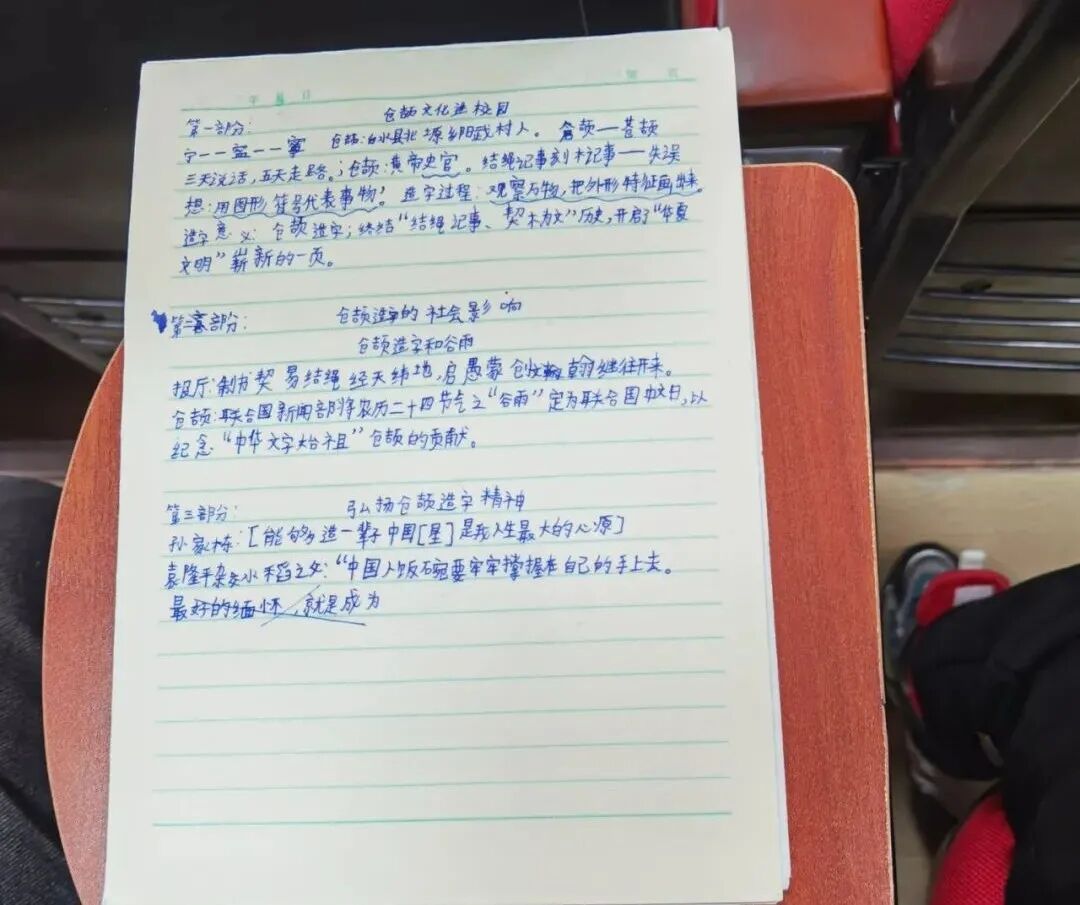 年 月 日
第 页
仓颉文化进校园
第一部分:
宁——寍——寧 仓颉:白水县北塬乡阳武村人。 倉颉——苍颉
三天说话,五天走路。;仓颉:黄帝史官。结绳记事刻木记事——失误
想:用图形符号代表事物! 造字过程:观察万物,把外形特征画出来。
造字意义:仓颉造字;终结“结绳记事、契木为文”历史,开启了“华夏
文明”崭新的一页。
第二部分: 仓颉造字的社会影响
仓颉造字和谷雨
投厅:制书契 易结绳 经天纬地,启愚蒙 创 翰继往开来。
仓颉:联合国新闻部将农历二十四节气之“谷雨”定为联合国中文日,以
纪念“中华文字始祖”仓颉的贡献。
第三部分: 弘扬仓颉造字精神
孙家栋:[能够造一辈子中国[星]是我人生最大的心愿]
袁隆平杂交水稻之父:“中国人饭碗要牢牢撑握在自己的手上去。
最好的缅怀,就是成为